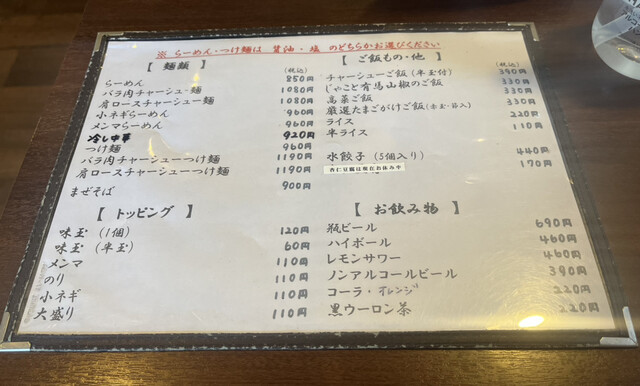 ※ らーめん・つけ麺は 醤油・塩 のどちらかお選びください
【 麺類 】 (税込)
らーめん 850円
バラ肉チャーシュー麺 1080円
肩ロースチャーシュー麺 1080円
小ネギらーめん 960円
メンマらーめん 960円
冷し中華 920円
つけ麺 960円
バラ肉チャーシューつけ麺 1190円
肩ロースチャーシューつけ麺 1190円
まぜそば 900円
【 トッピング 】
味玉 (1個) 120円
味玉 (半玉) 60円
メンマ 110円
のり 110円
小ネギ 110円
大盛り 110円
【 ご飯もの・他 】 (税込)
チャーシューご飯 (半玉付) 390円
じゃこと有馬山椒のご飯 330円
高菜ご飯 330円
厳選たまごがけご飯 330円
ライス 220円
半ライス 110円
水餃子 (5個入り) 440円
杏仁豆腐は現在お休み中 170円
【 お飲み物 】
瓶ビール 690円
ハイボール 460円
レモンサワー 460円
ノンアルコールビール 390円
コーラ・オレンジ 220円
黒ウーロン茶 220円